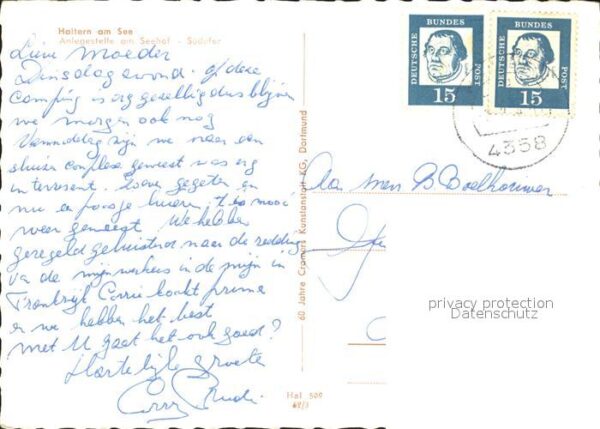 Haltern am See
Anlegestelle am Seehof - Südufer
Moeder
Dinsdagavond. Op deze
camping is erg gezellig dus blijven
we morgen ook nog
Vanmiddag zijn we naar een
sluizen complex geweest was erg
interesant. gegeten en
nu een
weer geweest. We hebben
geregeld geluisterd naar de redding
van de mijnwerkers in de mijn in
Frankrijk Corrie kookt prima
en we hebben het best
met U gaat het ook goed?
Hartelijke groeten
Corry
60 Jahre Cramers Kunstanstalt KG, Dortmund
Hal 509
DEUTSCHE BUNDES POST
15
DEUTSCHE BUNDES POST
15
4358
Aan B. Boelhouwer
privacy protection
Datenschutz